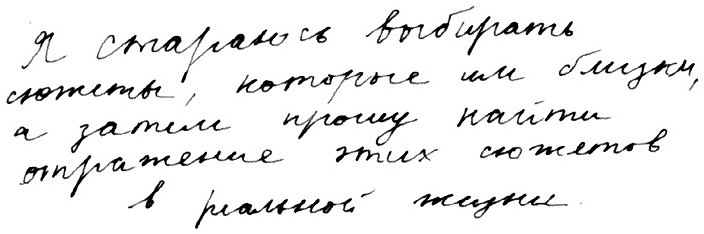 Я стараюсь выбирать
сюжеты, которые им близки,
а затем прошу найти
отражение этих сюжетов
в реальной жизни